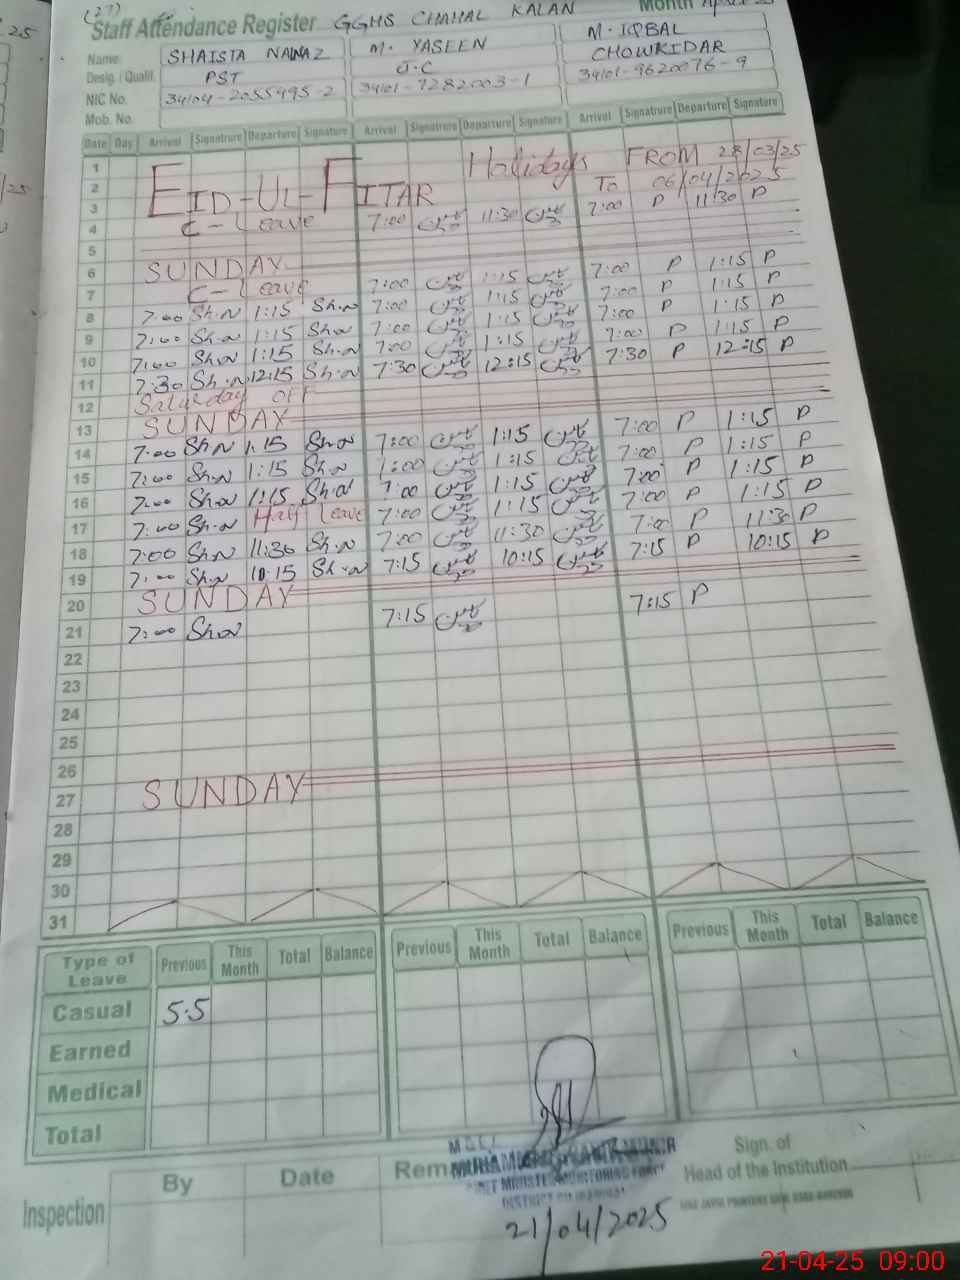 (27)
Staff Attendance Register GGHS CHAHAL KALAN Month
Name SHAISTA NAWAZ M. YASEEN M. IQBAL
Desig. / Qualif. PST J.C CHOWKIDAR
NIC No. 34104-2055495-2 34101-7282003-1 34101-9620076-9
Mob. No.
Date Day Arrival Signatrure Departure Signature Arrival Signatrure Departure Signature Arrival Signatrure Departure Signature
1 Holidays FROM 28/03/25
2 EID-UL-FITAR To 06/04/2025
3 C-Leave 7:00 11:30 7:00 P 11:30 P
4
5
6 SUNDAY
7 C-Leave 7:00 1:15 7:00 P 1:15 P
8 7:00 Sh.N 1:15 Sh.N 7:00 1:15 7:00 P 1:15 P
9 7:00 Sh.N 1:15 Sh.N 7:00 1:15 7:00 P 1:15 P
10 7:00 Sh.N 1:15 Sh.N 7:00 1:15 7:00 P 1:15 P
11 7:30 Sh.N 12:15 Sh.N 7:30 12:15 7:30 P 12:15 P
12 Saturday OFF
13 SUNDAY
14 7:00 Sh.N 1:15 Sh.N 7:00 1:15 7:00 P 1:15 P
15 7:00 Sh.N 1:15 Sh.N 7:00 1:15 7:00 P 1:15 P
16 7:00 Sh.N 1:15 Sh.N 7:00 1:15 7:00 P 1:15 P
17 7:00 Sh.N Half Leave 7:00 1:15 7:00 P 1:15 P
18 7:00 Sh.N 11:30 Sh.N 7:00 11:30 7:00 P 11:30 P
19 7:00 Sh.N 10:15 Sh.N 7:15 10:15 7:15 P 10:15 P
20 SUNDAY
21 7:00 Sh.N 7:15 7:15 P
22
23
24
25
26
27 SUNDAY
28
29
30
31
Type of Leave Previous This Month Total Balance Previous This Month Total Balance Previous This Month Total Balance
Casual 5.5
Earned
Medical
Total
Inspection By Date Sign. of
Head of the Institution
21/04/2025
21-04-25 09:00